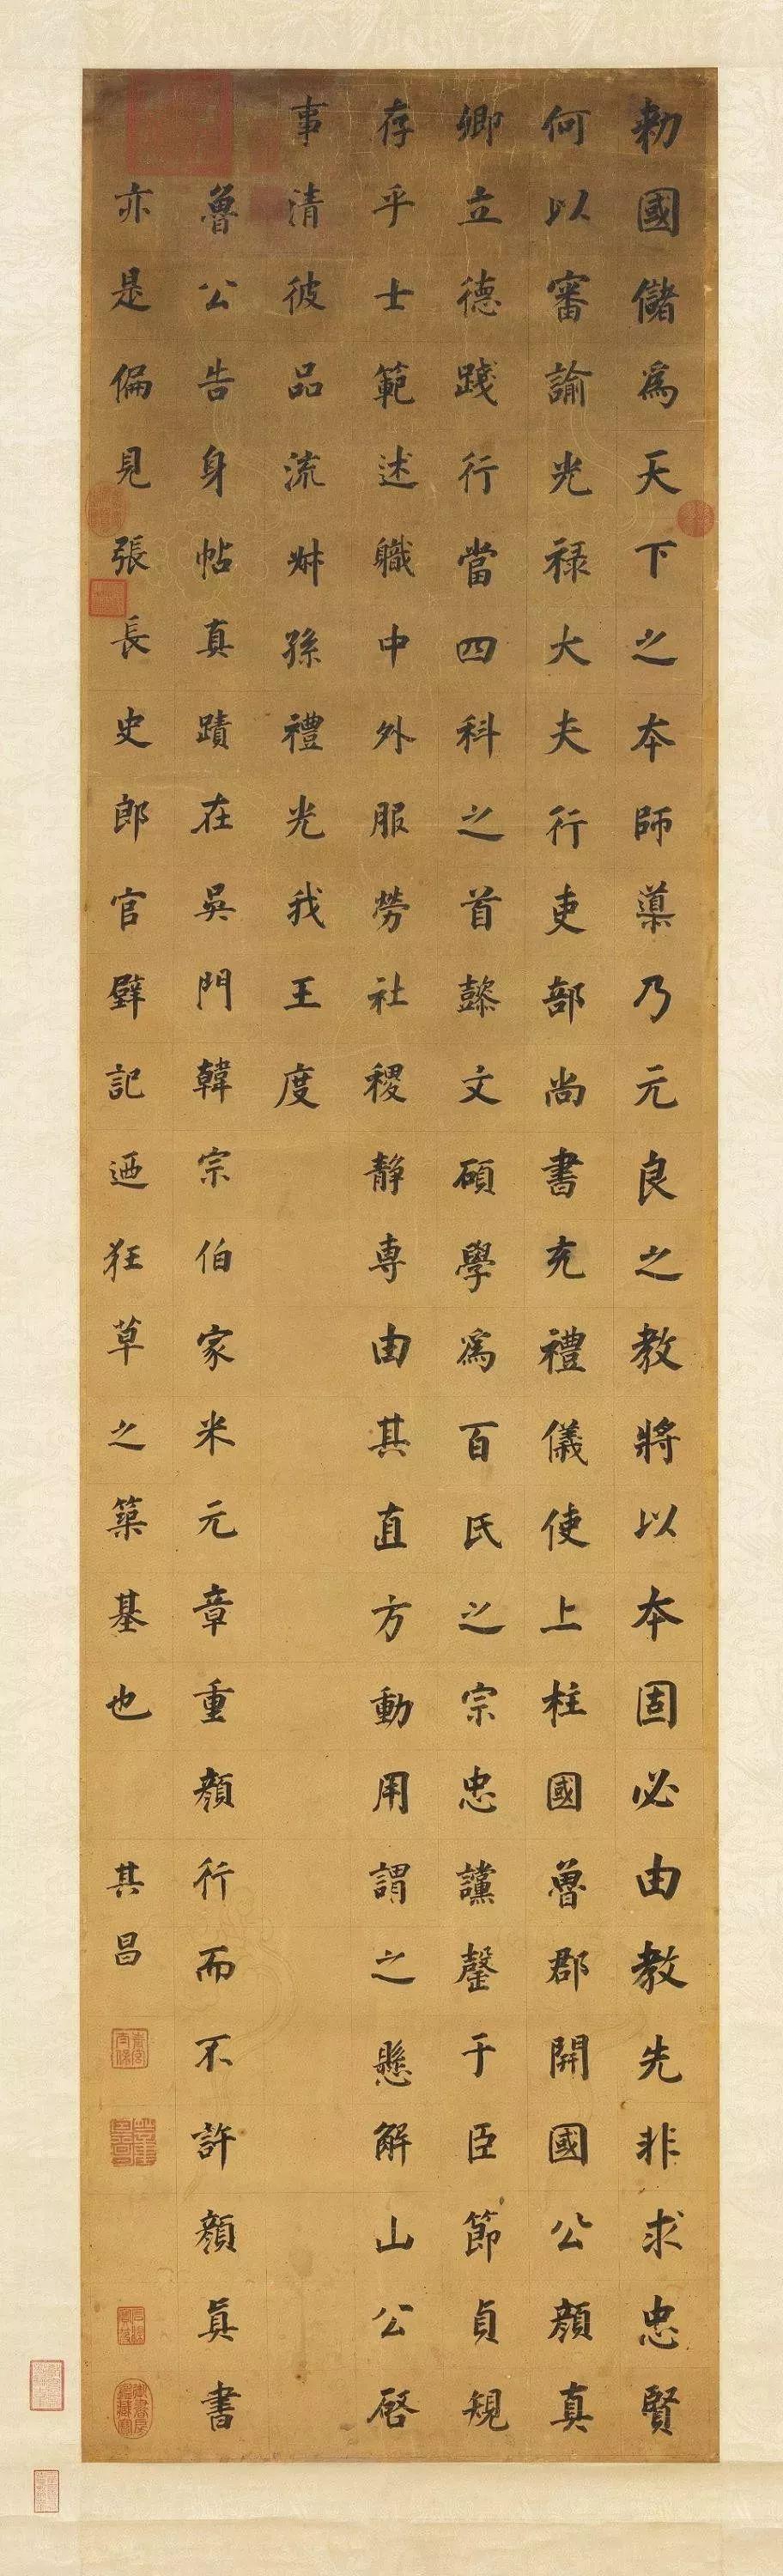 勑國儲爲天下之本師導乃元良之教將以本固必由教先非求忠賢
何以審諭光禄大夫行吏部尚書充禮儀使上柱國魯郡開國公顔真
卿立德踐行當四科之首懿文碩學爲百氏之宗忠讜罄于臣節貞規
存乎士範述職中外服勞社稷静專由其直方動用謂之懸解山公啓
事清彼品流叔孫禮光我王度
魯公告身帖真蹟在吳門韓宗伯家米元章重顔行而不許顔真書
亦是偏見張長史郎官壁記迺狂草之築基也 其昌